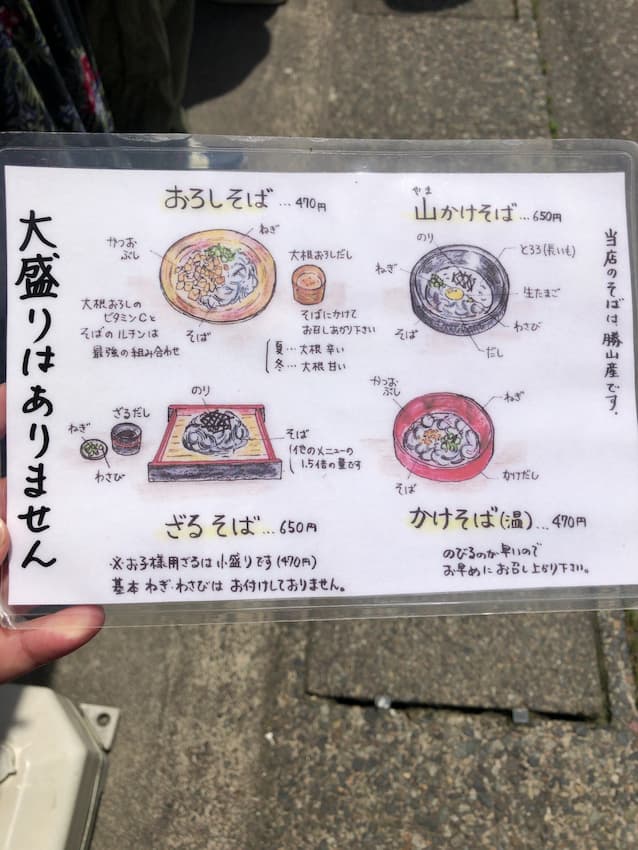 大盛りはありません
おろしそば…470円
ねぎ
かつお
ぶし
大根おろしだし
そばにかけて
お召しあがり下さい
そば
大根おろしの
ビタミンCと
そばのルチンは
最強の組み合わせ
夏…大根 辛い
冬…大根 甘い
やま
山かけそば…650円
のり
とろろ(長いも)
ねぎ
生たまご
わさび
そば
だし
当店のそばは、勝山産です。
のり
ざるだし
ねぎ
わさび
そば
他のメニューの
1.5倍の量です
ざるそば…650円
※お子様用ざるは小盛りです(470円)
基本 ねぎ・わさびは お付けしておりません。
かつお
ぶし
ねぎ
そば
かけだし
かけそば(温)…470円
のびるのが早いので
お早めにお召し上がり下さい。